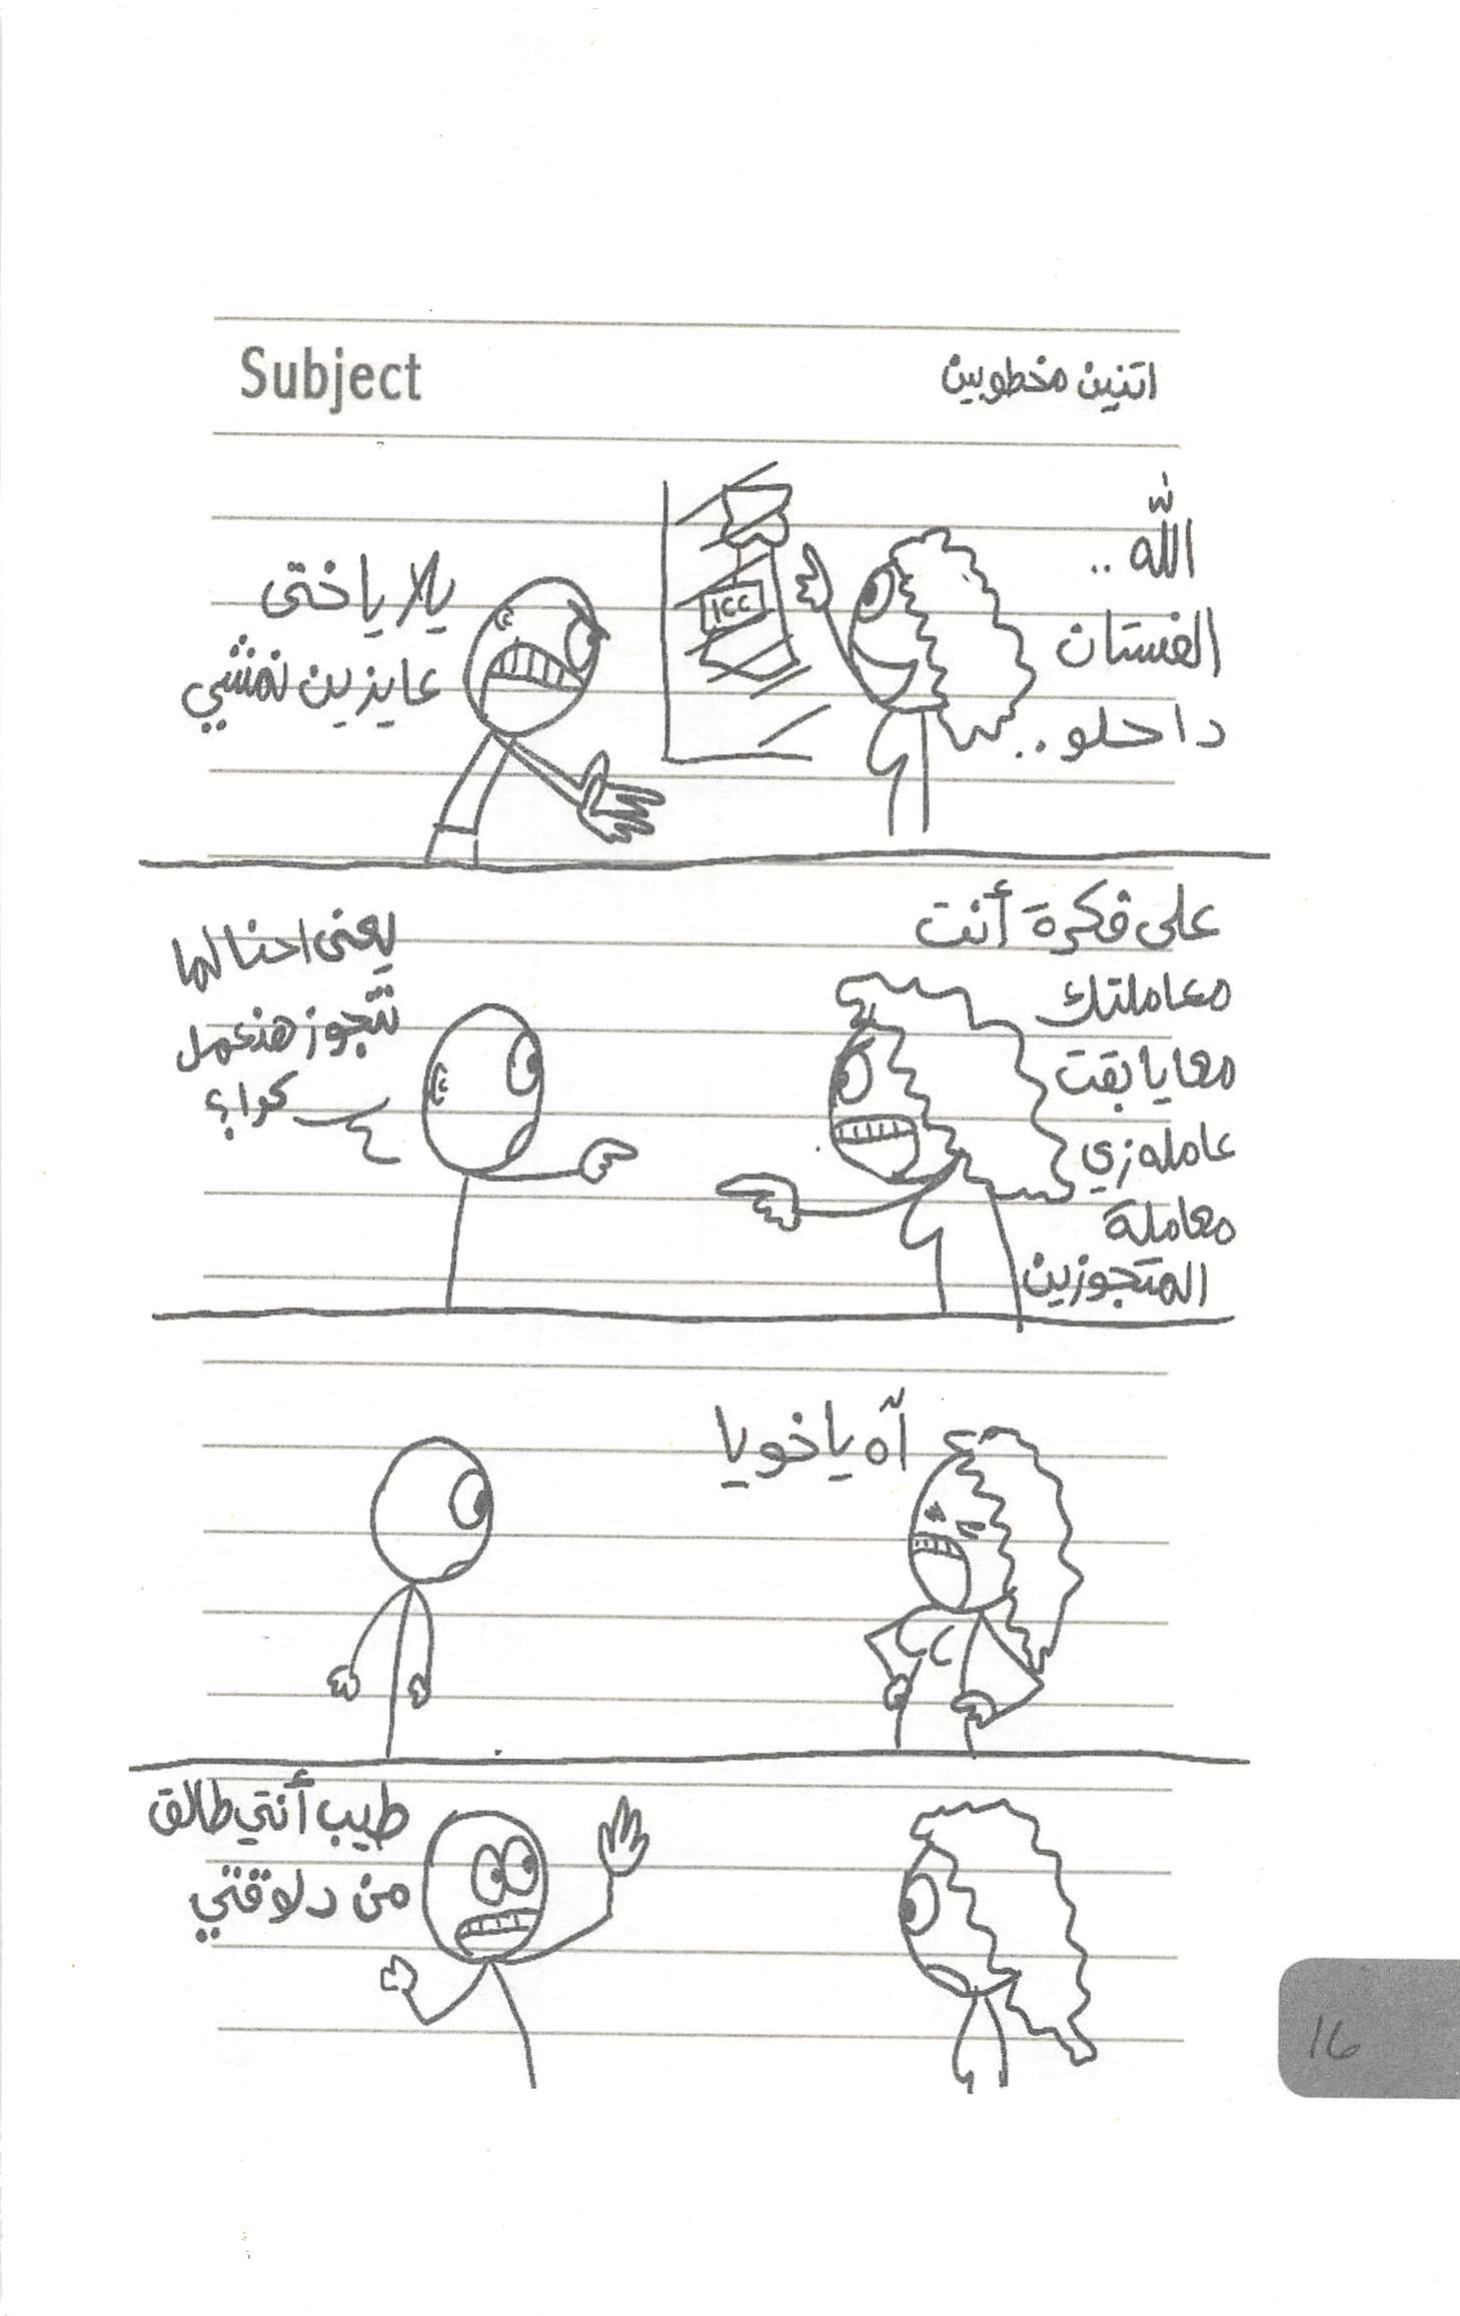 Subject
اتنين مخطوبين
الله ..
الفستان
دا حلو ..
يلا ياختى
عايزين نمشي
100
على فكرة أنت
معاملتك
معايا بقت
عامله زي
معاملة
المتجوزين
يعنى احنا لما
نتجوز هنعمل
كدا؟
آه ياخويا
طيب أنتي طالق
من دلوقتي
16